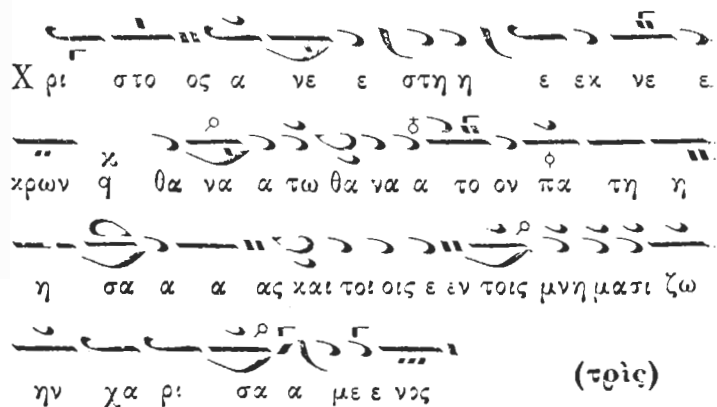 Χ ρι στο ος α νε ε στη η ε εκ νε ε
κρων q θα να α τω θα να α το ον πα τη η
η σα α α ας και τοι οις ε εν τοις μνη μα σι ζω
ην χα ρι σα α με ε νος (τρὶς)